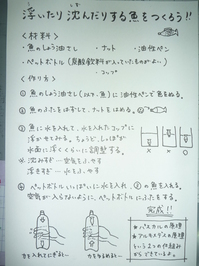 浮いたり沈んだりする魚をつくろう!!
＜材料＞
・魚のしょう油さし ・ナット ・油性ペン
・ペットボトル(炭酸飲料が入っていたものがよい)
・コップ
＜作り方＞
① 魚のしょう油さし(以下、魚)に油性ペンで魚をぬる。
② 魚のふたをはずして、ナットをはめる。
③ 魚に水を入れて、水を入れたコップに
浮かせてみる。ちょうど、しっぽが
水面に浮くくらいに調整する。
※ 沈みすぎ…空気をふやす
浮きすぎ…水をふやす
④ ペットボトルいっぱいに水を入れ、③の魚を入れる。
空気が入らないように、ペットボトルにふたをする。
完成!!
力を入れてにぎると…
力をゆるめると…
★パスカルの原理
★アルキメデスの原理
という2つの仕組みから
できているよ。